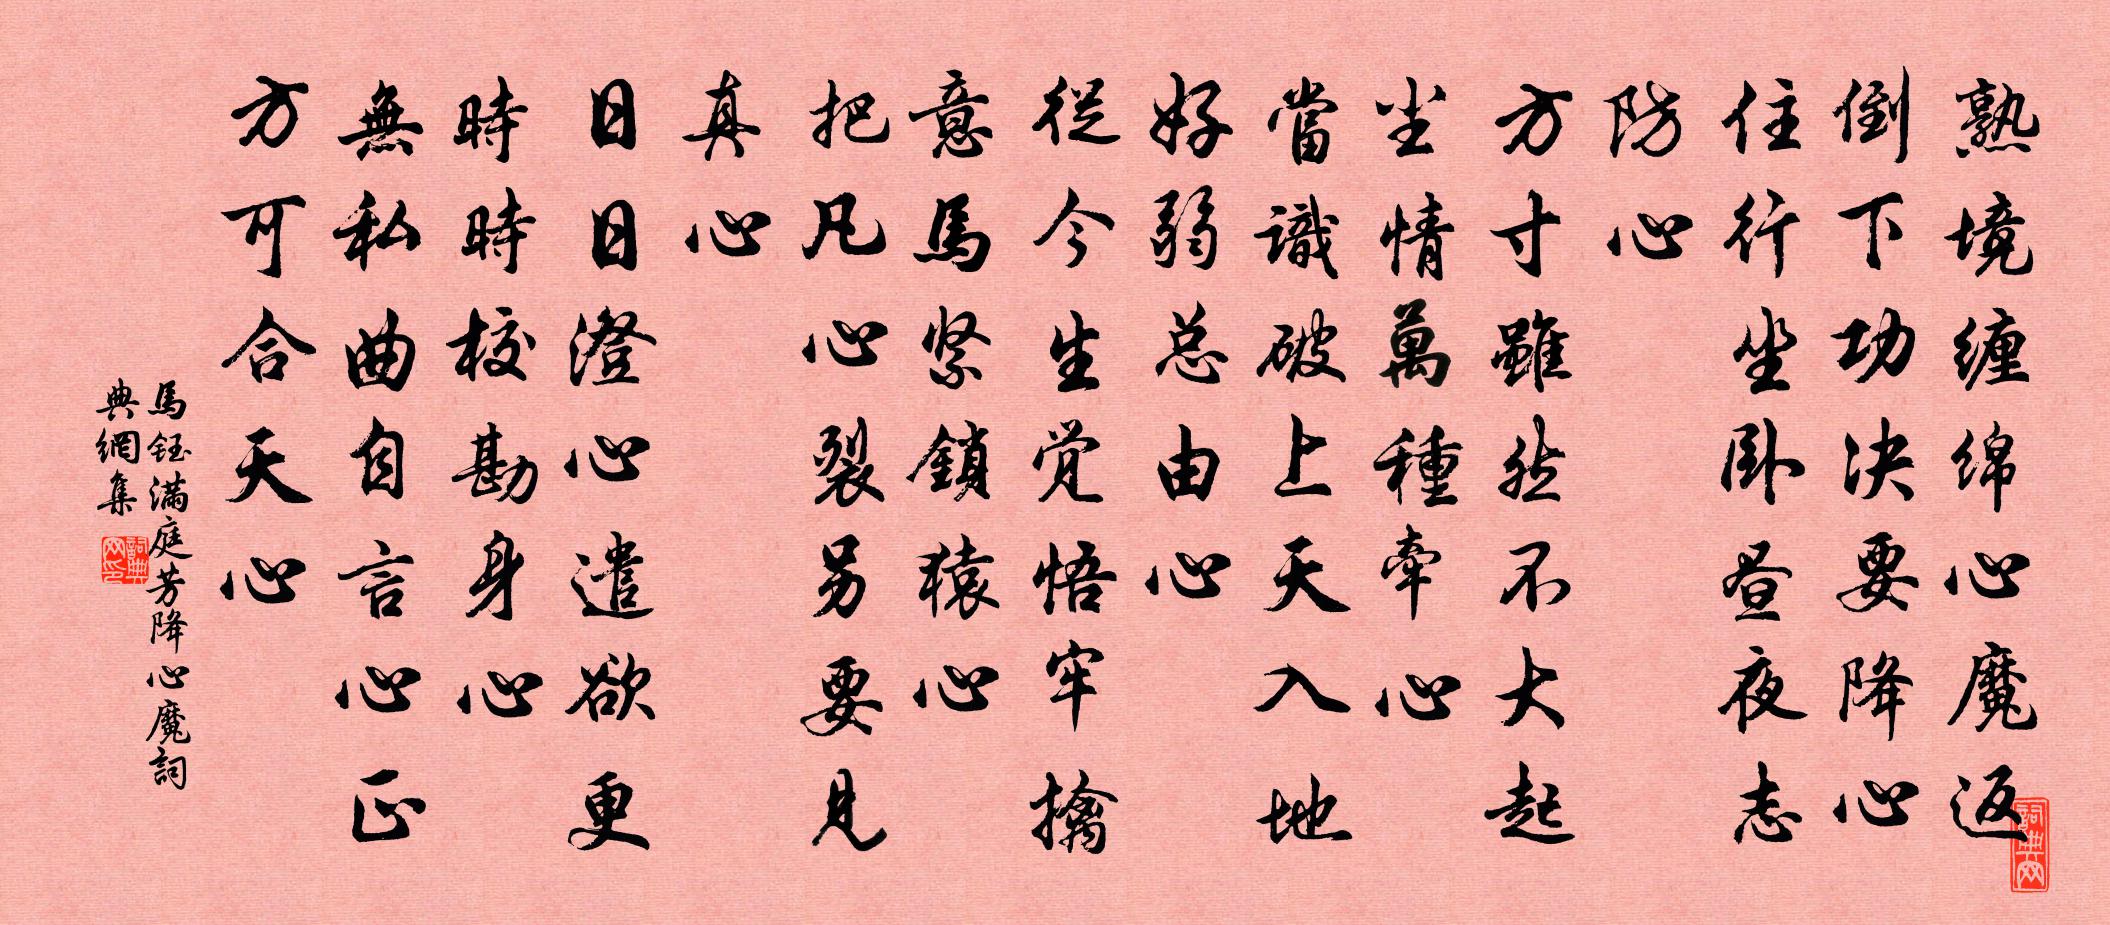 熟境缠绵心魔返
倒下功决要降心
住行坐卧昼夜志
防心
方寸雖然不大起
尘情萬種牽心
當識破上天入地
好弱总由心
從今生觉悟牢擒
意馬紧鎖猿心
把凡心裂另要見
真心
日日澄心遣欲更
時時校勘身心
無私曲自言心正
方可合天心
馬鈺满庭芳降心魔詞
典網集
詞典网
詞典网印